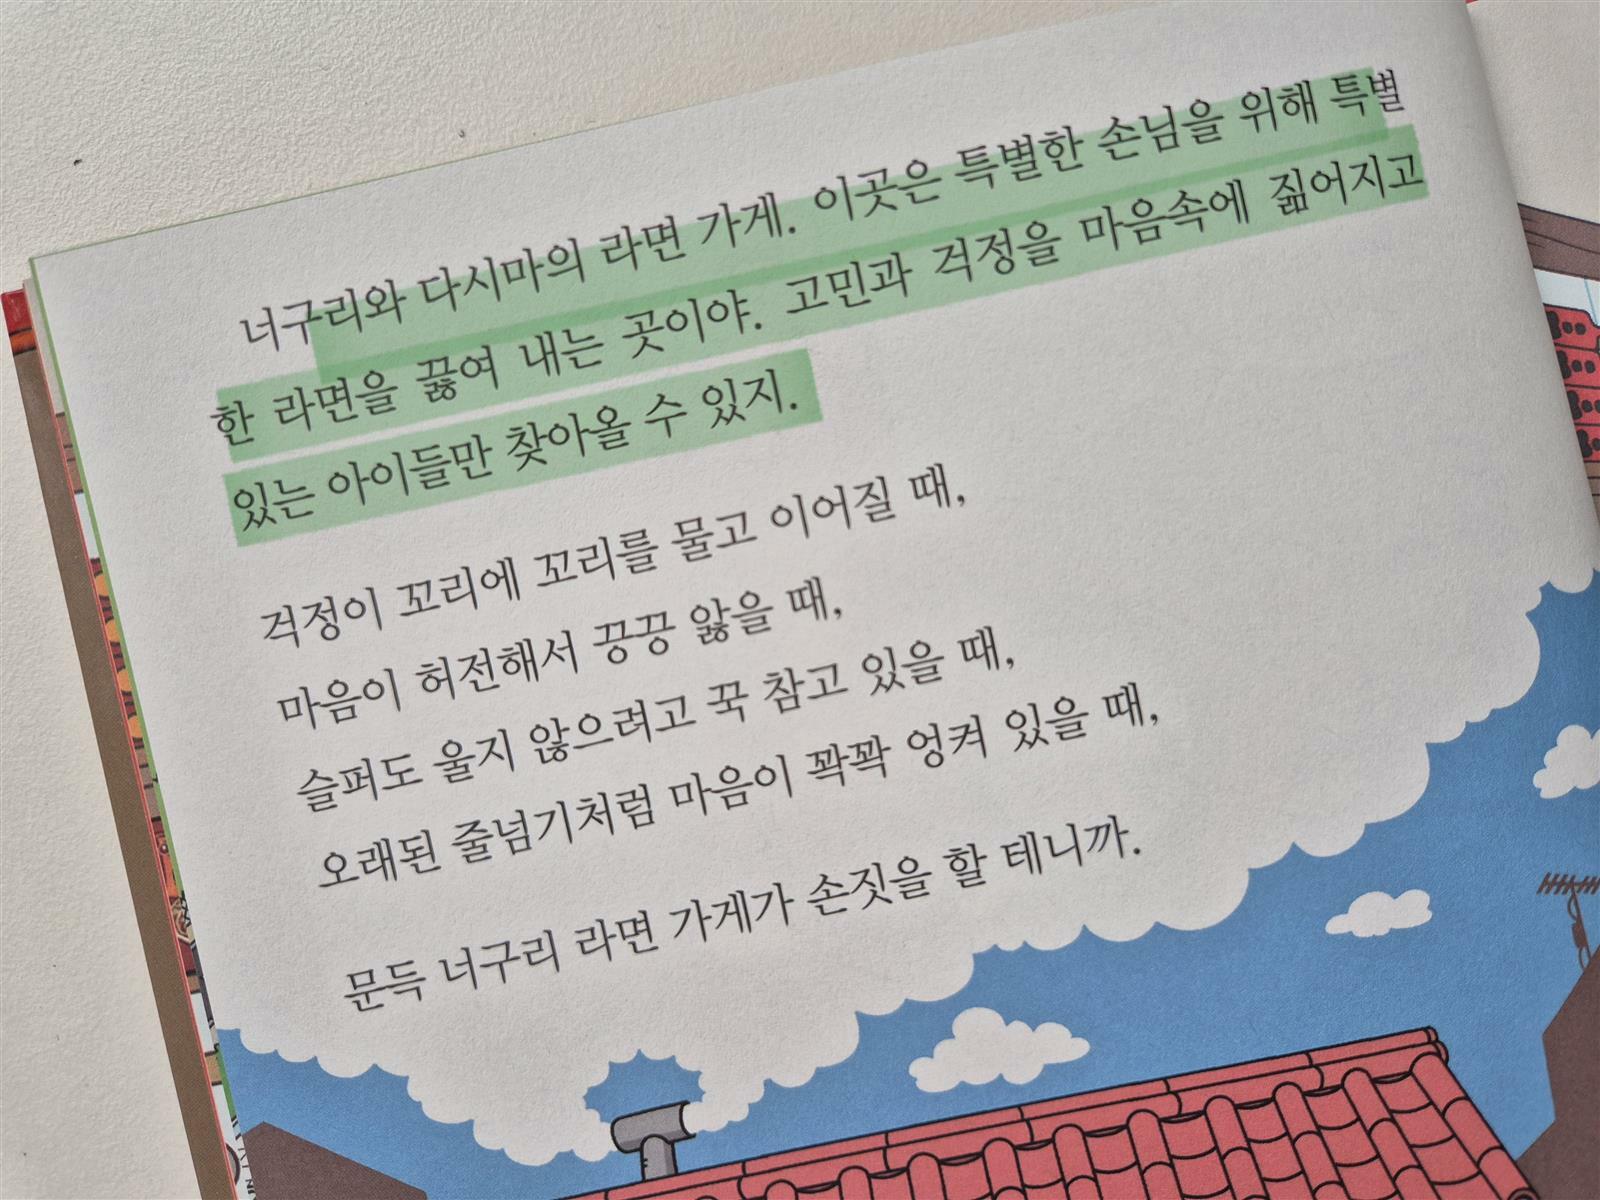 너구리와 다시마의 라면 가게. 이곳은 특별한 손님을 위해 특별
한 라면을 끓여 내는 곳이야. 고민과 걱정을 마음속에 짊어지고
있는 아이들만 찾아올 수 있지.
걱정이 꼬리에 꼬리를 물고 이어질 때,
마음이 허전해서 끙끙 앓을 때,
슬퍼도 울지 않으려고 꾹 참고 있을 때,
오래된 줄넘기처럼 마음이 꽉꽉 엉켜 있을 때,
문득 너구리 라면 가게가 손짓을 할 테니까.